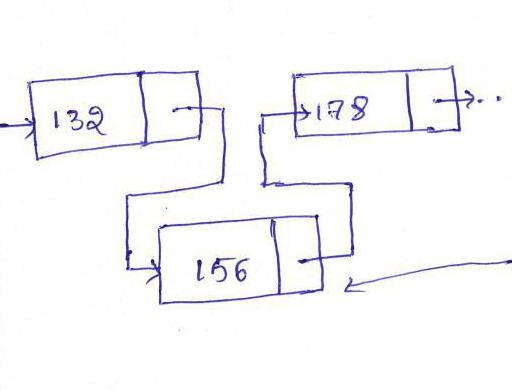 132
178
156